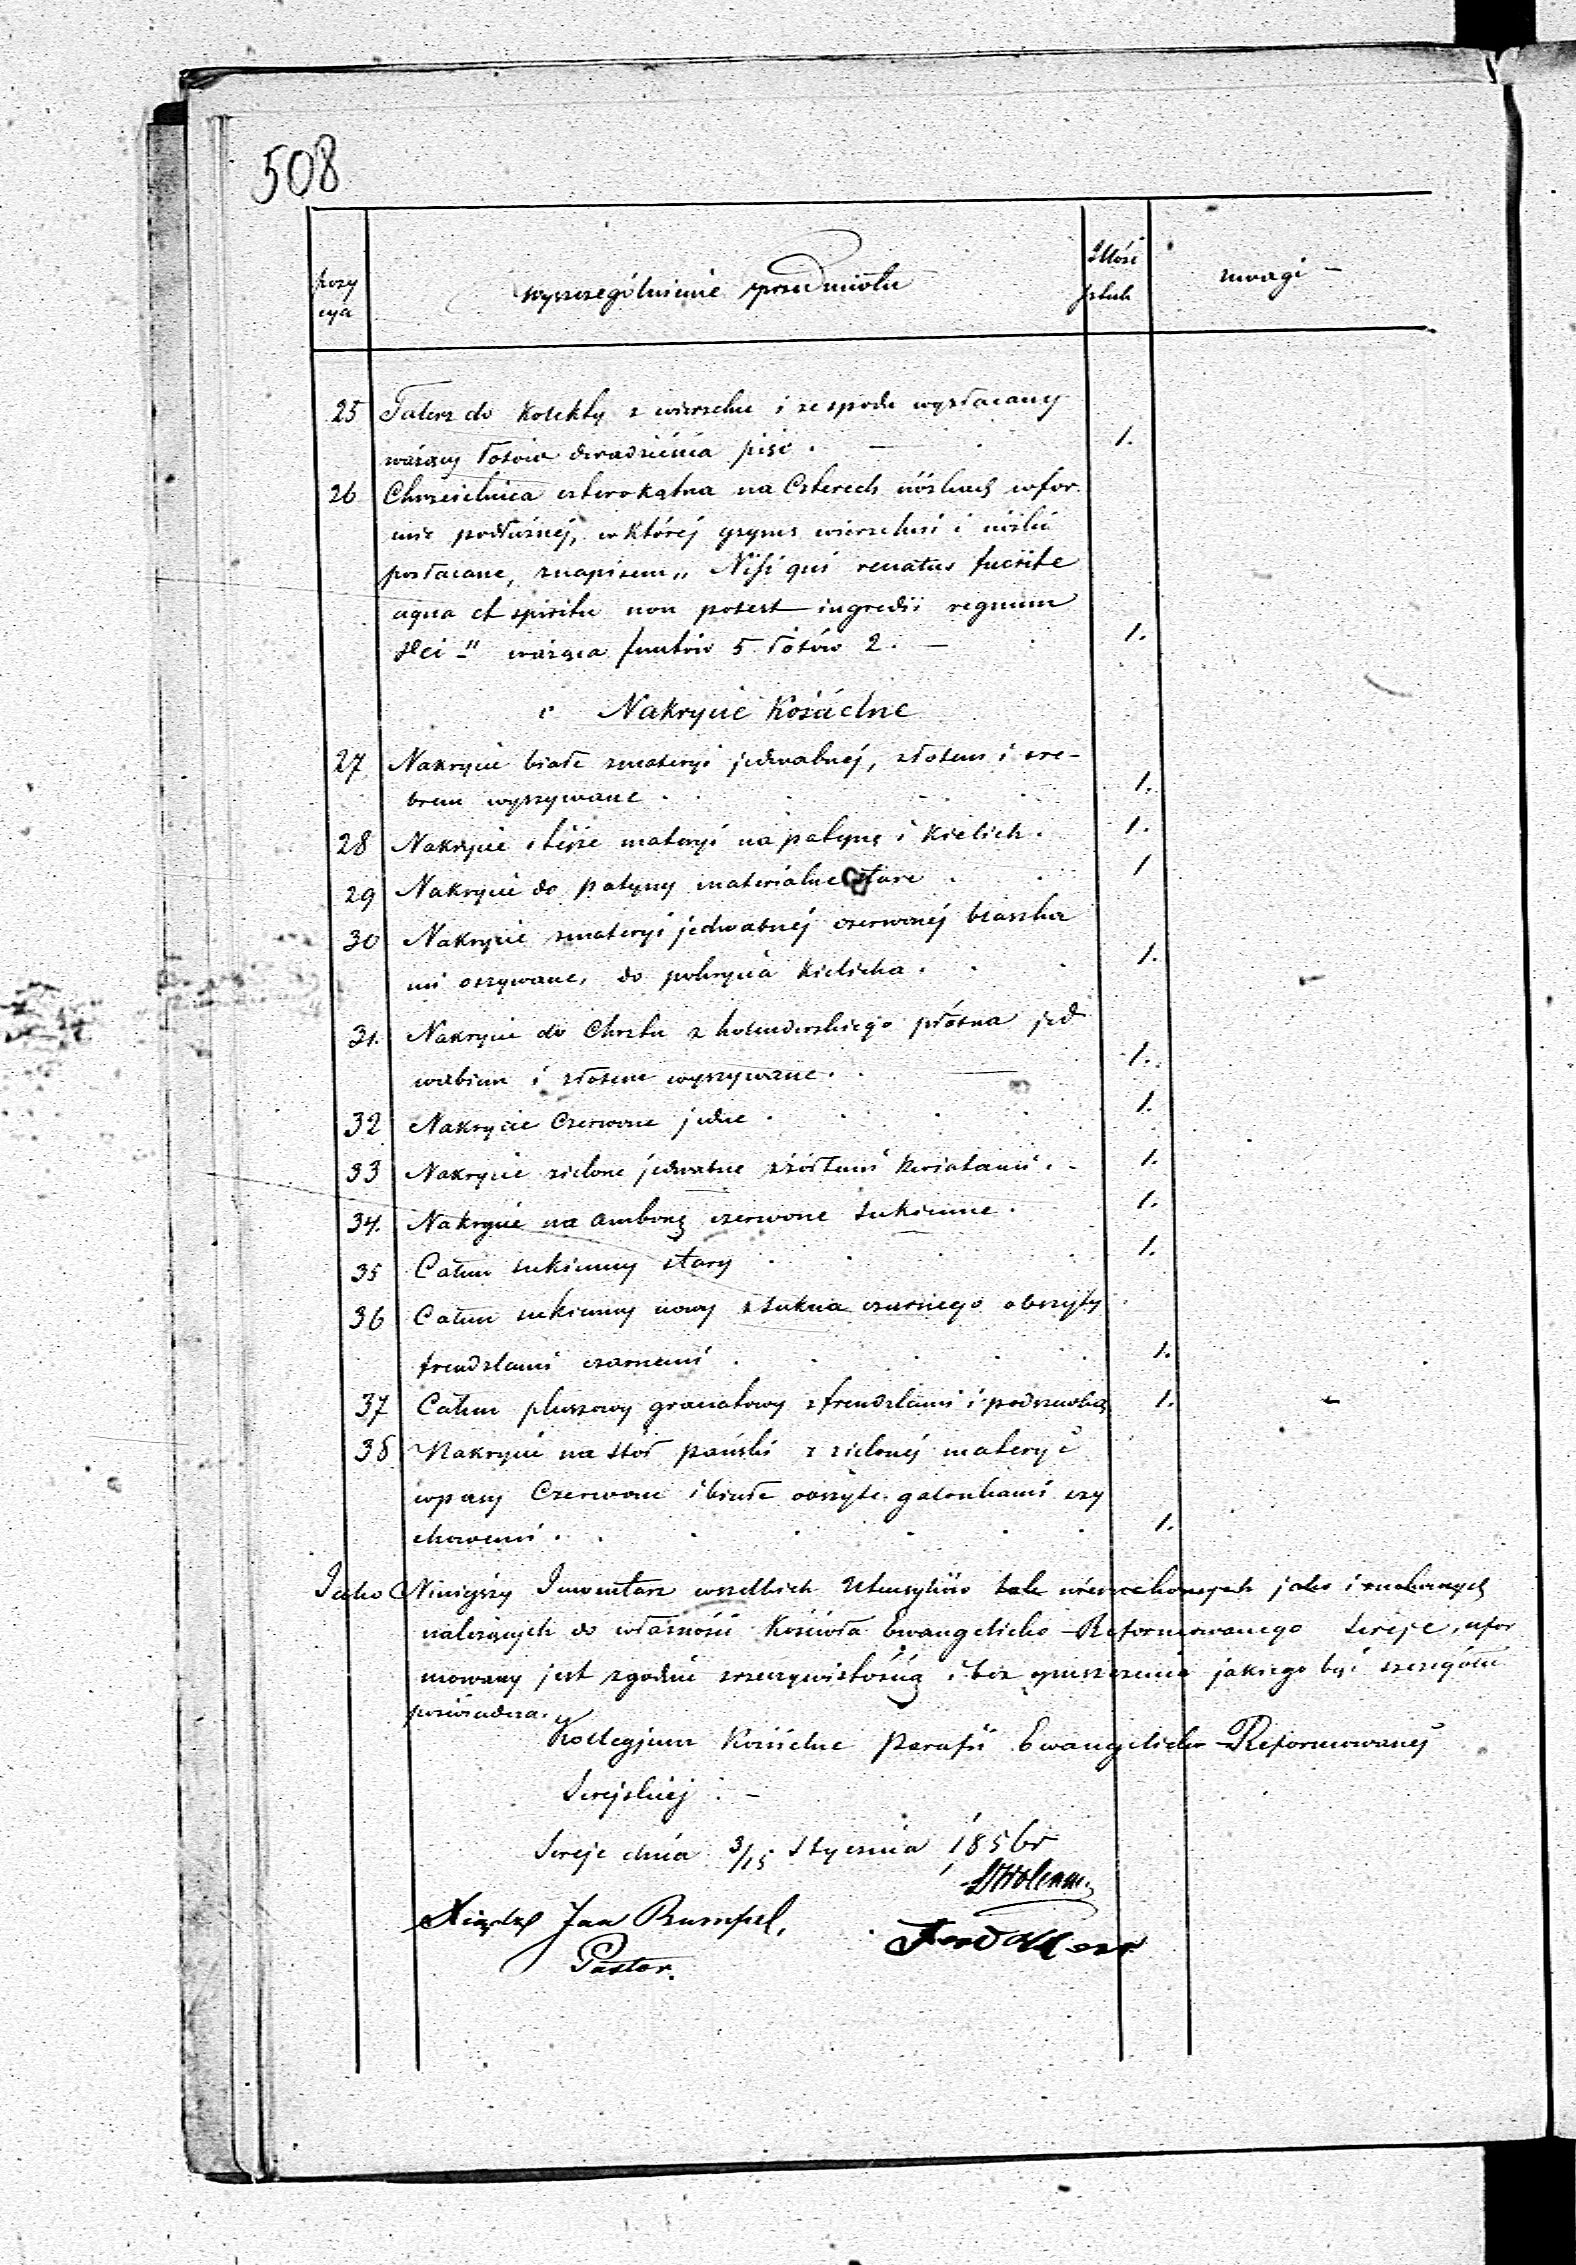 508
pozy
cya
wyszczególnienie przedmiotu
Ilość
sztuk
uwagi
25 Talerz do Kolekty z wierzchu i ze spodu wyzłacany
ważący łotów dwadzieścia pięć . 1.
26 Chrzcielnica czterokątna na Czterech nóżkach w for
mie podłużnéj, w któréj gzyms wierzchni i nóżki
pozłacane, z napisem „ Nisi qui renatus fuerit e
aqua et spiritu non potest ingredii regnum
Dei -" ważąca funtów 5 łotów 2. 1.
Nakrycie Kościelne
27 Nakrycie białe z materyi jedwabnéj, złotem i sre-
brem wyszywane . 1.
28 Nakrycie z téjże materyi na patynę i Kielich . 1.
29 Nakrycie do patyny materialne stare . 1
30 Nakrycie z materyi jedwabnéj czerwonéj blaszka
mi oszywane, do pokrycia Kielicha . 1.
31. Nakrycie do Chrztu z holenderskiego płótna jed
wabiem i złotem wyszywane . 1.
32 Nakrycie Czerwone jedne . 1.
33 Nakrycie zielone jedwabne z żółtemi kwiatami . 1.
34. Nakrycie na ambonę czerwone sukienne . 1.
35 Całun sukienny stary . 1.
36 Całun sukienny nowy z sukna czarnego obszyty
frendzlami czarnemi . 1.
37 Całun pluszowy granatowy z frendzlami i podszewką 1.
38 Nakrycie na stół pański z zielonéj materyi
w pasy Czerwone i białe obszyte galonkami szy
chowemi . 1.
Jako Niniejszy Inwentarz wszelkich Utensyliów tak nieruchomych jako i ruchomych
należących do własności Kościoła Ewangelicko-Reformowanego Sereje, ufor
mowany jest zgodnie z rzeczywistością i bez opuszczenia jakiego bądź szczegółu
poświadcza.
Kollegjum Kościelne Parafii Ewangelicko-Reformowanéj
Serejskiej . -
Sereje dnia 3/15 Stycznia 1856 r
Xiądz Jan Rumpel,
Pastor.